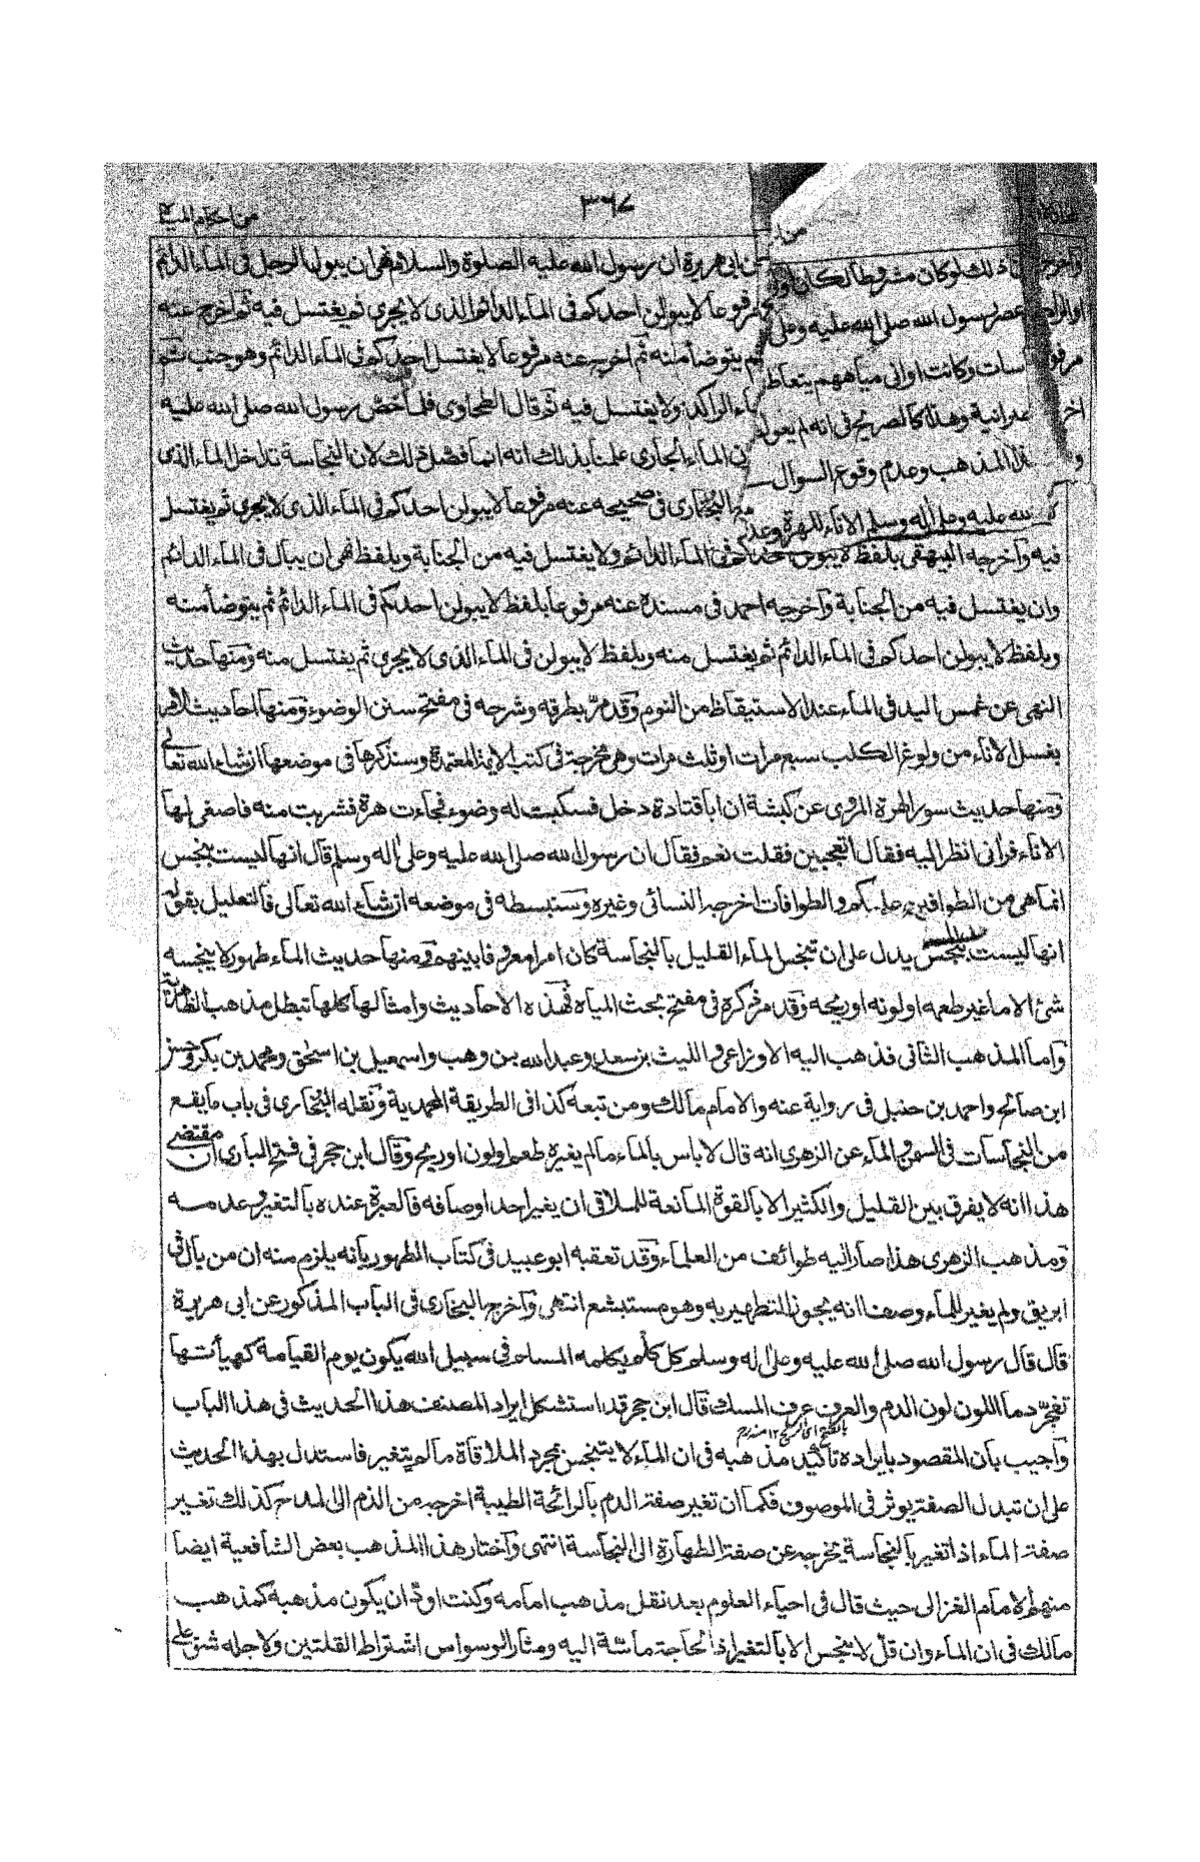 ٣٦٧
من احكام المياه
وآخرج
عن ابى هريرة ان رسول الله عليه الصلوة والسلام نهى ان يبول الرجل فى الماء الدائم
مرفوعا لا يبولن احدكم فى الماء الدائم الذى لا يجرى ثم يغتسل فيه ثم اخرج عنه
ثم يتوضأ منه ثم اخرج عنه مرفوعا لا يغتسل احدكم فى الماء الدائم وهو جنب ثم
الراكد ولا يغتسل فيه ثم قال الطحاوى فلما خص رسول الله صلى الله عليه
الماء الجارى علمنا بذلك انه انما فصل ذلك لان النجاسة تداخل الماء الذى
البخارى فى صحيحه عنه مرفوعا لا يبولن احدكم فى الماء الذى لا يجرى ثم يغتسل
ذلك لو كان مشروطا لكان
عصر رسول الله صلى الله عليه وعلى
وكانت اوانى مياههم يتعاطا
وهذا كالصريح فى انه لم يعول
المذهب وعدم وقوع السوال
الله عليه وعلى اله وسلم الاناء للهرة وعد
فيه وآخرجه البيهقى بلفظ لا يبولن احدكم فى الماء الدائم ولا يغتسل فيه من الجنابة وبلفظ نهى ان يبال فى الماء الدائم
وان يغتسل فيه من الجنابة وآخرجه احمد فى مسنده عنه مرفوعا بلفظ لا يبولن احدكم فى الماء الدائم ثم يتوضأ منه
وبلفظ لا يبولن احدكم فى الماء الدائم ثم يغتسل منه وبلفظ لا يبولن فى الماء الذى لا يجرى ثم يغتسل منه ومنها حديث
النهى عن غمس اليد فى الماء عند الاستيقاظ من النوم وقد مرّ بطرقه وشرحه فى مفتح سنن الوضوء ومنها احاديث الامر
بغسل الاناء من ولوغ الكلب سبع مرات او ثلث مرات وهى مخرجة فى كتب الايمة المعتمدة وسنذكرها فى موضعها انشاء الله تعالى
ومنها حديث سور الهرة المروى عن كبشة ان ابا قتادة دخل فسكبت له وضوء فجاءت هرة فشربت منه فاصغى لها
الاناء فرآنى انظر اليه فقال اتعجبين فقلت نعم فقال ان رسول الله صلى الله عليه وعلى اله وسلم قال انها ليست بنجس
انما هى من الطوافين عليكم والطوافات اخرجه النسائى وغيره وستبسطه فى موضعه ان شاء الله تعالى فالتعليل بقوله
انها ليست بنجس يدل على ان تنجس الماء القليل بالنجاسة كان امرا معروفا بينهم ومنها حديث الماء طهور لا ينجسه
شئ الا ما غير طعمه او لونه او ريحه وقد مر ذكره فى مفتح بحث المياه فهذه الاحاديث وامثالها كلها تبطل مذهب الظاهرية
وآما المذهب الثانى فذهب اليه الاوزاعى والليث بن سعد وعبد الله بن وهب واسمعيل بن اسحق ومحمد بن بكر وحسن
ابن صالح واحمد بن حنبل فى رواية عنه والامام مالك ومن تبعه كذا فى الطريقة المحمدية ونقله البخارى فى باب ما يقع
من النجاسات فى السمن والماء عن الزهرى انه قال لا باس بالماء ما لم يغيره طعم او لون او ريح وقال ابن حجر فى فتح البارى ان مقتضى
هذا انه لا يفرق بين القليل والكثير الا بالقوة المانعة للملاقى ان يغير احد اوصافه فالعبرة عنده بالتغير وعدمه
ومذهب الزهرى هذا صار اليه طوائف من العلماء وقد تعقبه ابو عبيد فى كتاب الطهور بانه يلزم منه ان من بال فى
ابريق ولم يغير للماء وصفا انه يجوز التطهير به وهو مستبشع انتهى وآخرج البخارى فى الباب المذكور عن ابى هريرة
قال قال رسول الله صلى الله عليه وعلى اله وسلم كل كلم يكلمه المسلم فى سبيل الله يكون يوم القيامة كهيأتها
تفجّر دما اللون لون الدم والعرف عرف المسك قال ابن حجر قد استشكل ايراد المصنف هذا الحديث فى هذا الباب
بالفتح اى الريح ١٢ منه
وآجيب بان المقصود بايراده تأكيد مذهبه فى ان الماء لا يتنجس بمجرد الملاقاة ما لم يتغير فاستدل بهذا الحديث
على ان تبدل الصفة يوثر فى الموصوف فكما ان تغير صفة الدم بالرائحة الطيبة اخرجه من الذم الى المدح كذلك تغير
صفة الماء اذا تغير بالنجاسة يخرجه عن صفة الطهارة الى النجاسة انتهى وآختار هذا المذهب بعض الشافعية ايضا
منهم الامام الغزالى حيث قال فى احياء العلوم بعد نقل مذهب امامه وكنت اودّ ان يكون مذهبه كمذهب
مالك فى ان الماء وان قل لا ينجس الا بالتغير اذ الحاجة ماسّة اليه ومثار الوسواس اشتراط القلتين ولاجله شق على